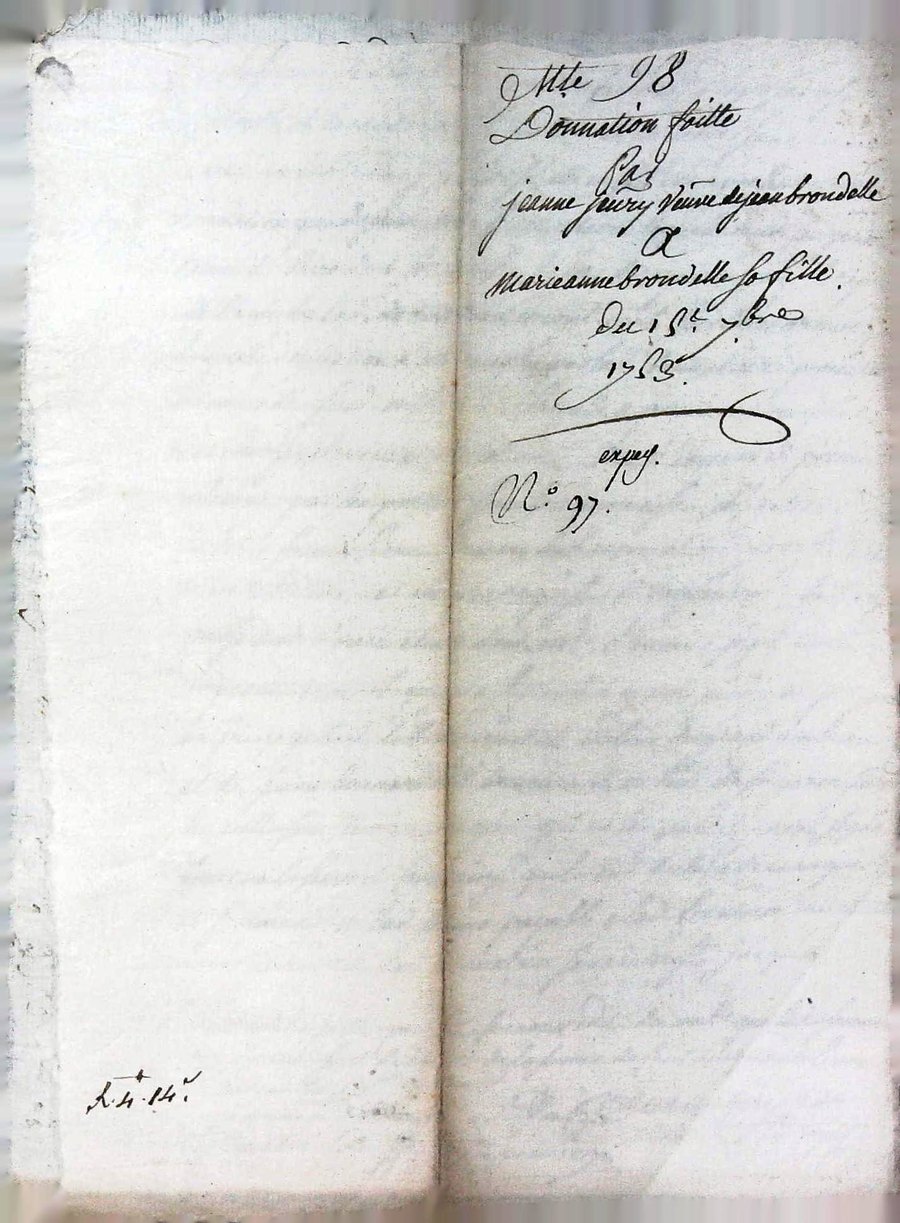 Mte 98
Donnation faitte
Par
jeanne feury Veuve de jean brondelle
A
marieanne brondelle sa fille.
du 15e 7bre
1753.
expeg.
N.o 97.
R. 4. 14s.